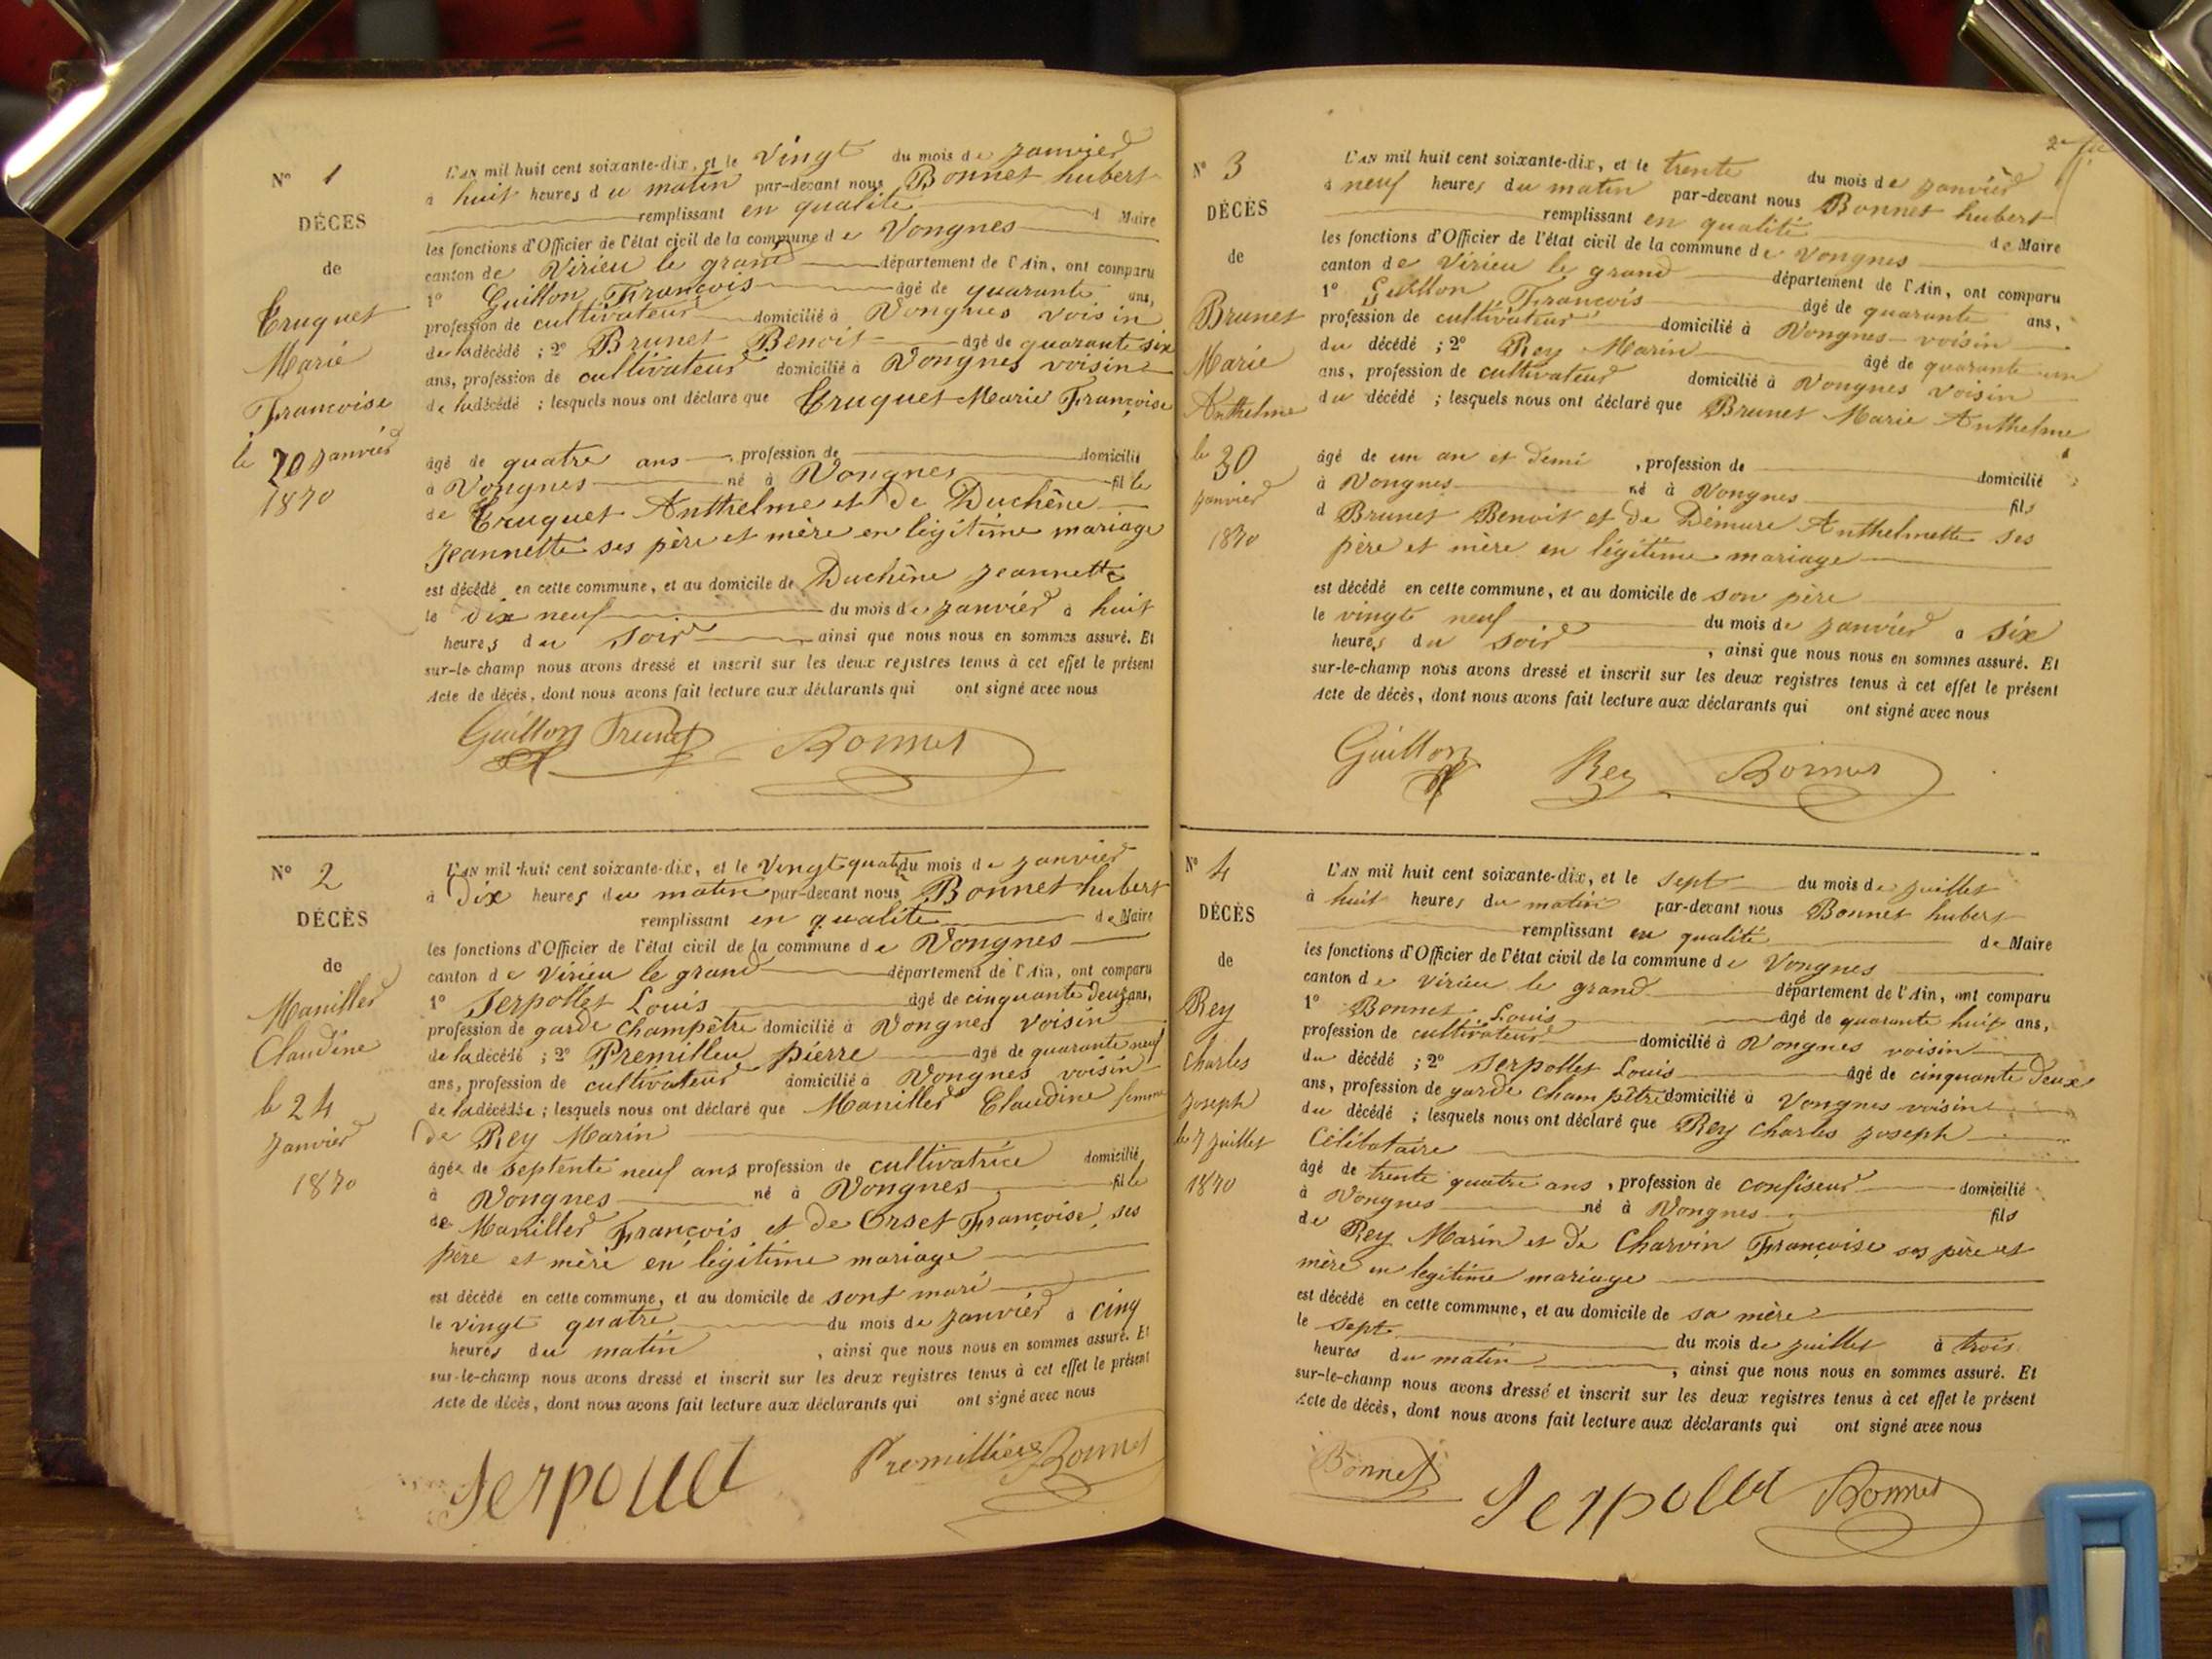 N° 1
DÉCES
de
Truquet
Marie
Francoise
le 20 janvier
1870
L'AN mil huit cent soixante-dix, et le Vingt du mois de janvier
à huit heures du matin par-devant nous Bonnet hubert
remplissant en qualité d Maire
les fonctions d'Officier de l'état civil de la commune de Vongnes
canton de Virieu le grand département de l'Ain, ont comparu
1° Guillon François âgé de quarante ans,
profession de cultivateur domicilié à Vongnes voisin
de la décédé ; 2° Brunet Benoit âgé de quarante six
ans, profession de cultivateur domicilié à Vongnes voisin
de la décédé ; lesquels nous ont déclaré que Truquet Marie Françoise
âgé de quatre ans profession de domicilié
à Vongnes né à Vongnes fille
de Truquet Anthelme et de Duchêne
Jeannette ses père et mère en légitime mariage
est décédé en cette commune, et au domicile de Duchêne Jeannette
le dix neuf du mois de janvier à huit
heures du soir ainsi que nous nous en sommes assuré. Et
sur-le-champ nous avons dressé et inscrit sur les deux registres tenus à cet effet le présent
Acte de décès, dont nous avons fait lecture aux déclarants qui ont signé avec nous
Guillon Brunet Bonnet
N° 2
DÉCÈS
de
Maniller
Claudine
le 24
janvier
1870
L'AN mil huit cent soixante-dix, et le Vingt quatre du mois de janvier
à Dix heures du matin par-devant nous Bonnet hubert
remplissant en qualité de Maire
les fonctions d'Officier de l'état civil de la commune de Vongnes
canton de Virieu le grand département de l'Ain, ont comparu
1° Serpollet Louis âgé de cinquante deux ans,
profession de garde champêtre domicilié à Vongnes voisin
de la décédé ; 2° Premilleu pierre âgé de quarante neuf
ans, profession de cultivateur domicilié à Vongnes voisin
de la décédée ; lesquels nous ont déclaré que Maniller Claudine femme
de Rey Marin
âgée de septente neuf ans profession de cultivatrice domicilié
à Vongnes né à Vongnes fille
de Maniller François et de Orset Françoise ses
père et mère en légitime mariage
est décédé en cette commune, et au domicile de sont mari
le vingt quatre du mois de janvier à cinq
heures du matin , ainsi que nous nous en sommes assuré. Et
sur-le-champ nous avons dressé et inscrit sur les deux registres tenus à cet effet le présent
Acte de décès, dont nous avons fait lecture aux déclarants qui ont signé avec nous
Serpollet Premillieu Bonnet
N° 3
DÉCÈS
de
Brunet
Marie
Anthelme
le 30
janvier
1870
L'AN mil huit cent soixante-dix, et le trente du mois de janvier
à neuf heures du matin par-devant nous Bonnet hubert
remplissant en qualité de Maire
les fonctions d'Officier de l'état civil de la commune de Vongnes
canton de Virieu le grand département de l'Ain, ont comparu
1° Guillon François âgé de quarante ans,
profession de cultivateur domicilié à Vongnes voisin
du décédé ; 2° Rey Marin âgé de quarante un
ans, profession de cultivateur domicilié à Vongnes voisin
du décédé ; lesquels nous ont déclaré que Brunet Marie Anthelme
âgé de un an et demi , profession de domicilié
à Vongnes né à Vongnes fils
d Brunet Benoit et de Démure Anthelmette ses
père et mère en légitime mariage
est décédé en cette commune, et au domicile de son père
le vingt neuf du mois de janvier à six
heures du soir , ainsi que nous nous en sommes assuré. Et
sur-le-champ nous avons dressé et inscrit sur les deux registres tenus à cet effet le présent
Acte de décès, dont nous avons fait lecture aux déclarants qui ont signé avec nous
Guillon Rey Bonnet
N° 4
DÉCÈS
de
Rey
Charles
joseph
le 7 juillet
1870
L'AN mil huit cent soixante-dix, et le sept du mois de juillet
à huit heures du matin par-devant nous Bonnet hubert
remplissant en qualité de Maire
les fonctions d'Officier de l'état civil de la commune de Vongnes
canton de Virieu le grand département de l'Ain, ont comparu
1° Bonnet Louis âgé de quarante huit ans,
profession de cultivateur domicilié à Vongnes voisin
du décédé ; 2° Serpollet Louis âgé de cinquante deux
ans, profession de garde champêtre domicilié à Vongnes voisin
du décédé ; lesquels nous ont déclaré que Rey Charles joseph
Célibataire
âgé de trente quatre ans , profession de confiseur domicilié
à Vongnes né à Vongnes fils
de Rey Marin et de Charvin Françoise ses père et
mère en légitime mariage
est décédé en cette commune, et au domicile de sa mère
le sept du mois de juillet à trois
heures du matin , ainsi que nous nous en sommes assuré. Et
sur-le-champ nous avons dressé et inscrit sur les deux registres tenus à cet effet le présent
Acte de décès, dont nous avons fait lecture aux déclarants qui ont signé avec nous
Bonnet Serpollet Bonnet